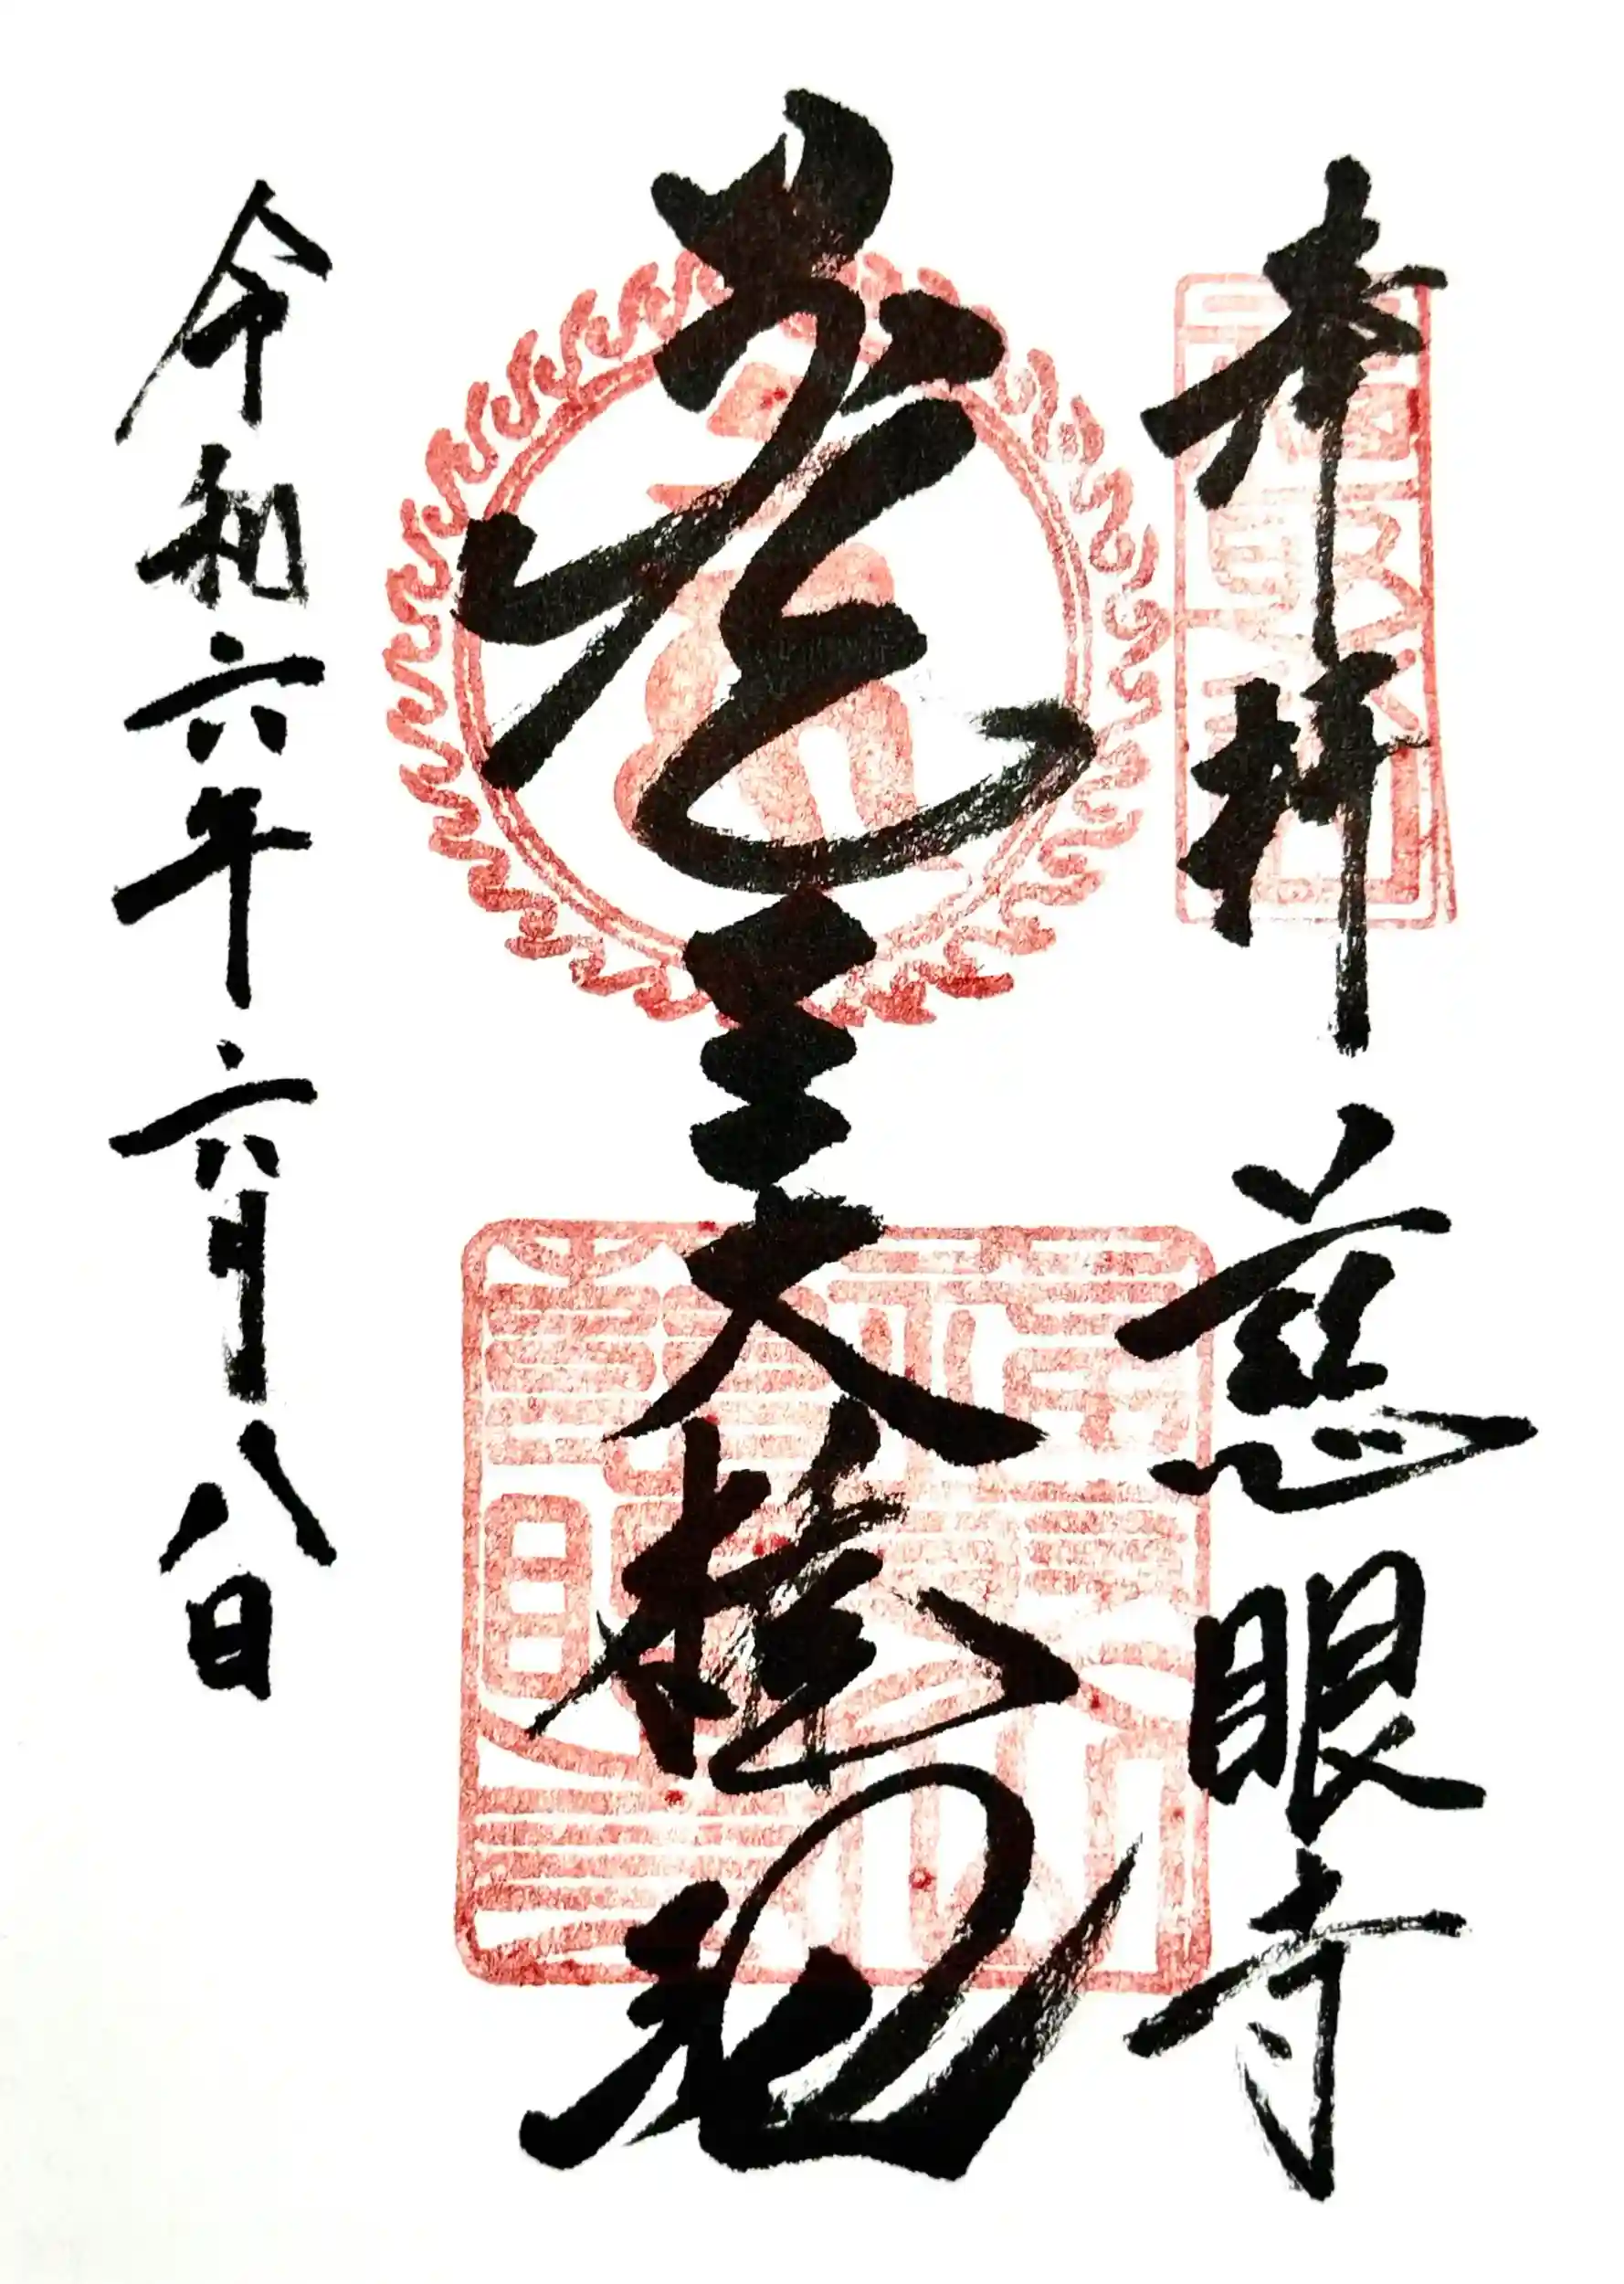 奉拝 慈眼寺
蔵王大権現
令和六年六月八日